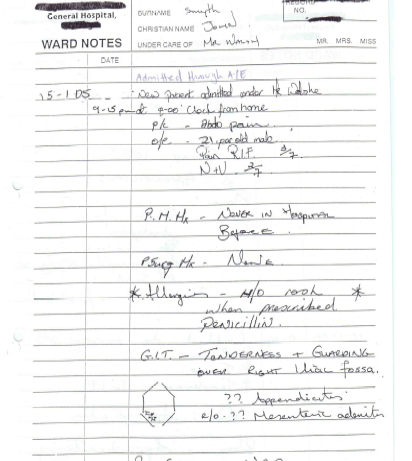 General Hospital,
WARD NOTES
SURNAME Smyth
CHRISTIAN NAME John
UNDER CARE OF Mr
RECORD
NO.
MR. MRS. MISS
DATE
Admitted through A/E
15-1-05 New patient admitted under Mr Walshe
9-15pm at 9-00' Clock from home
P/c - Abdo pain.
O/e - 21 year old male
Pain R.I.F. 3/7
N+V. 2/7
P.M.Hx - Never in Hospital
Before.
PSurg Hx - None
* Allergies - H/O rash *
when prescribed
Penicillin.
G.I.T. - TENDERNESS + GUARDING
OVER RIGHT Iliac fossa.
?? Appendicitis
R/O - ?? Mesenteric adenitis